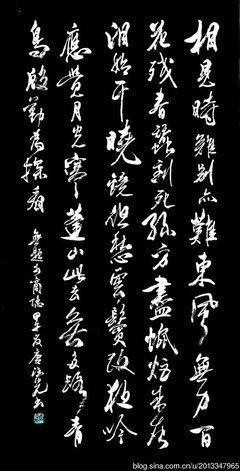 相見時難別亦難東風無力百
花殘春蠶到死絲方盡蠟炬成灰
淚始干曉鏡但愁雲鬢改夜吟
應覺月光寒蓬山此去無多路青
鳥殷勤為探看 無題李商隱 甲午夏唐 书
blog.sina.com.cn/u/2013347965